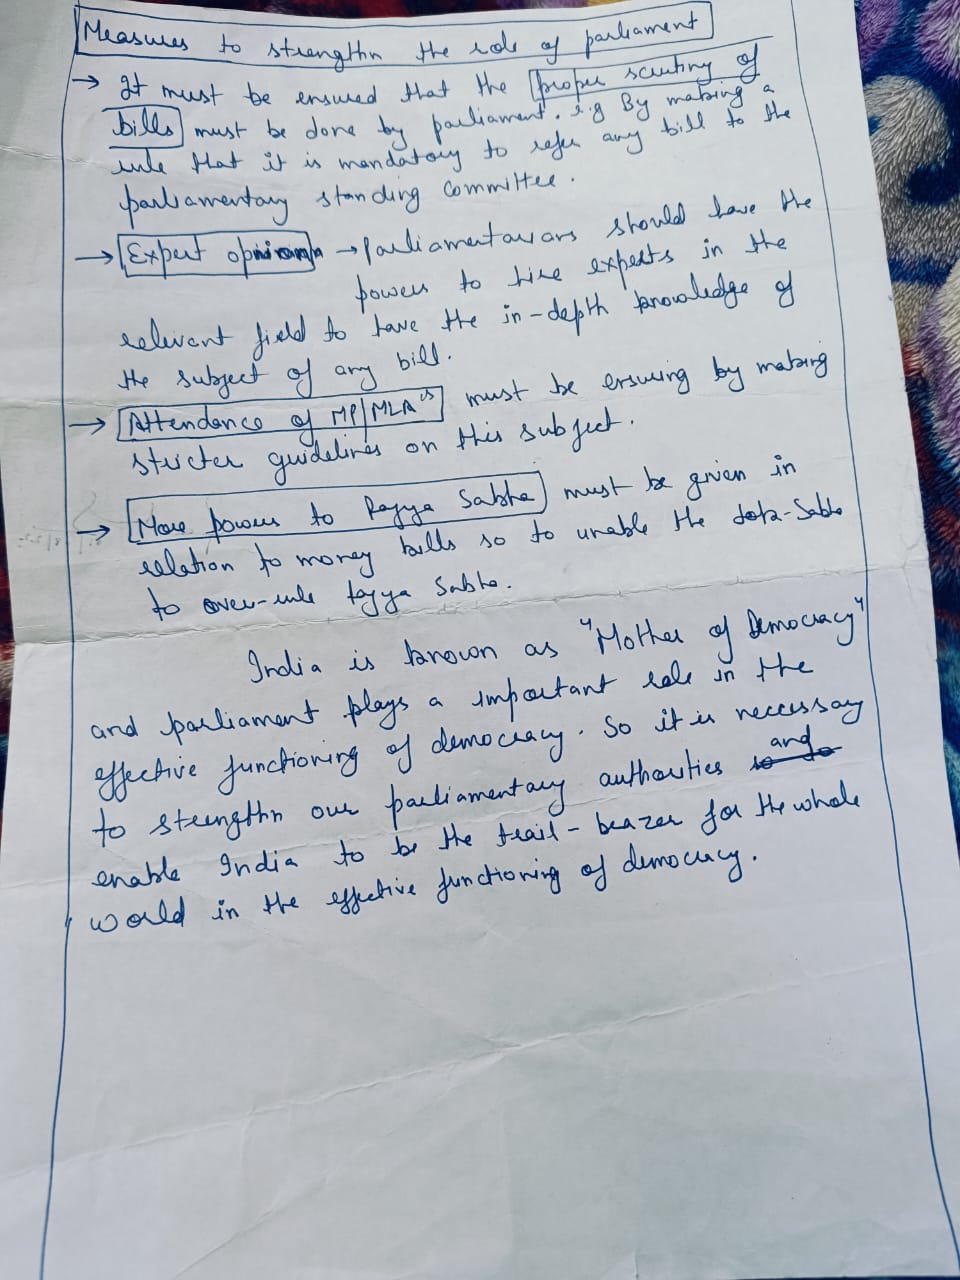 Measures to strengthn the role of parliament
→ It must be ensured that the proper scrutiny of
bills must be done by parliament. e.g By making a
rule that it is mandatory to refer any bill to the
parliamentary standing Committee.
→ Expert opinion → Parliamentarians should have the
powers to hire experts in the
relevant field to have the in-depth knowledge of
the subject of any bill.
→ Attendance of MP/MLA's must be ensuring by making
stricter guidelines on this subject.
→ More powers to Rajya Sabha must be given in
relation to money bills so to unable the lok-Sabha
to over-rule rajya Sabha.
India is known as "Mother of Democracy"
and parliament plays a important role in the
effective functioning of democracy. So it is necessary
to strengthn our parliamentary authorities and
enable India to be the trail-beazer for the whole
world in the effective functioning of democracy.